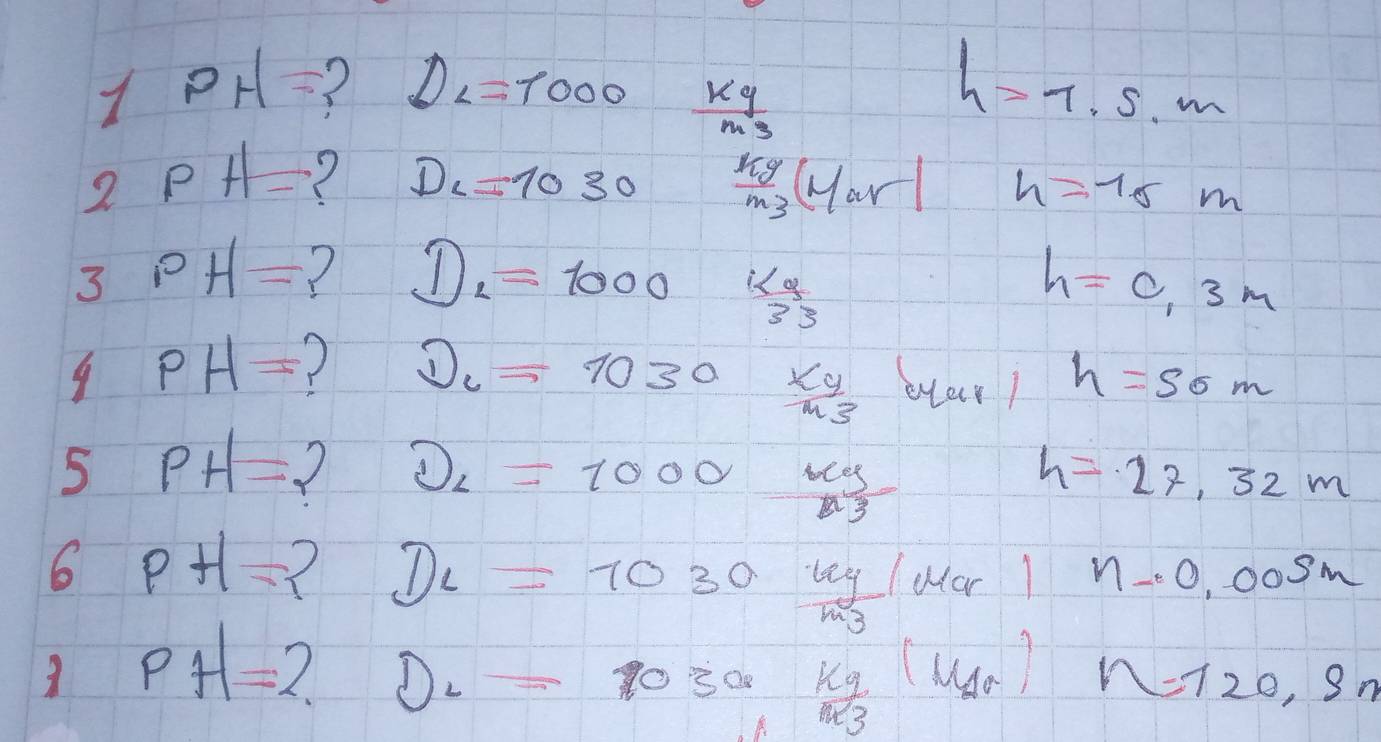 1 PH=? DL=1000 kg/m3 h=1.5.m
2 PH=? DL=1030 kg/m3 (Mar) h=15 m
3 PH=? DL=1000 kg/33 h=0,3m
4 PH=? DL=1030 kg/m3 (Mar) h=50m
5 PH=? DL=1000 kg/m3 h=27,32m
6 PH=? DL=1030 kg/m3 (Mar) h=0,005m
7 PH=? DL=1030 kg/m3 (Mar) h=120,8m